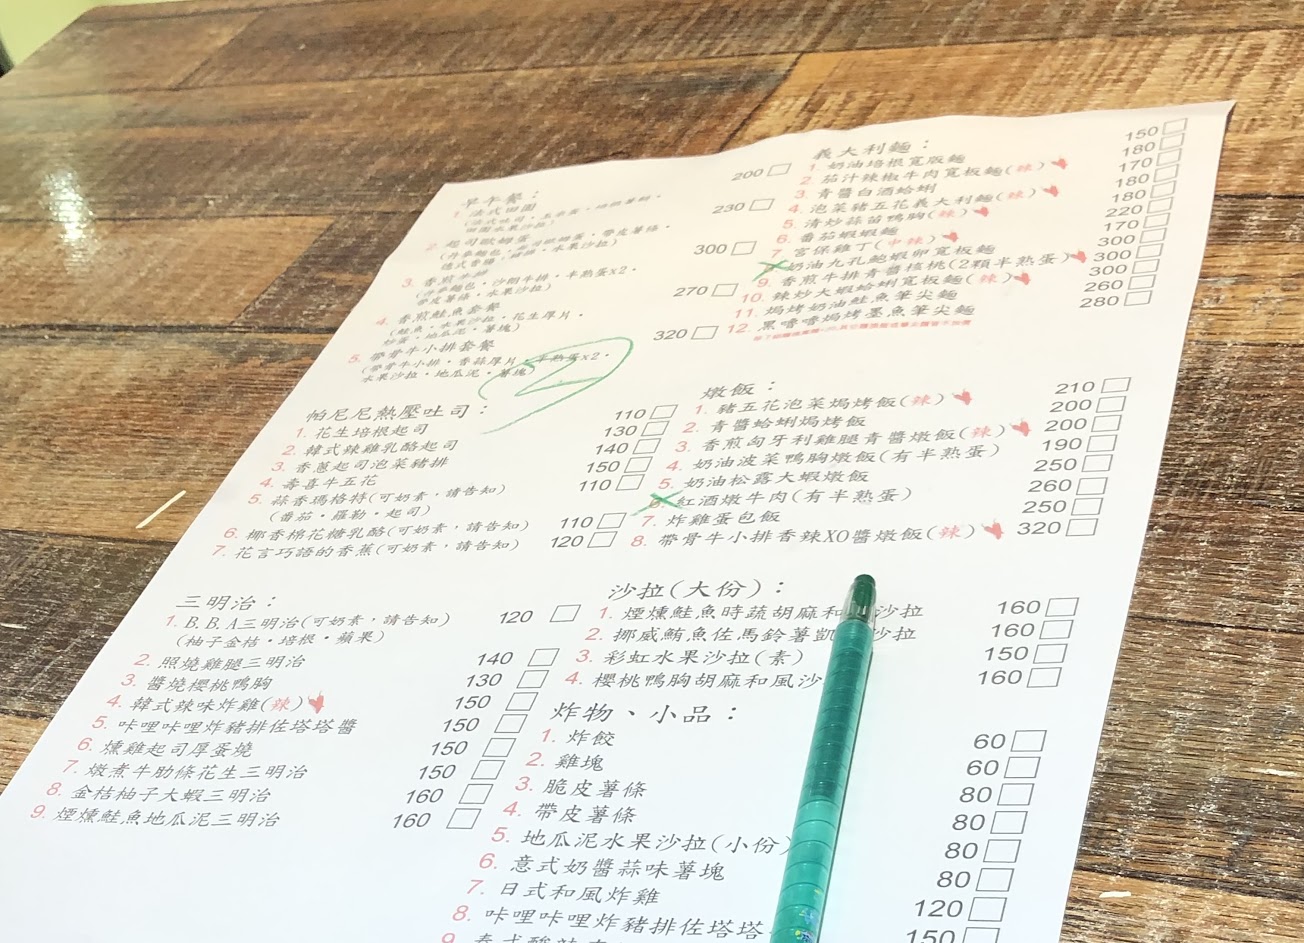 早午餐：
1. 法式田園 200
田園水果沙拉)
2. 起司歐姆蛋 230
3. 香煎牛排 300
(丹麥麵包・沙朗牛排・半熟蛋x2・
帶皮薯條・水果沙拉)
4. 香煎鮭魚套餐 270
(鮭魚・水果沙拉・花生厚片・
炒蛋・地瓜泥・薯塊)
5. 帶骨牛小排套餐 320
(帶骨牛小排・香蒜厚片・半熟蛋x2・
水果沙拉・地瓜泥・薯塊)
2
帕尼尼熱壓吐司：
1. 花生培根起司 110
2. 韓式辣雞乳酪起司 130
3. 香蔥起司泡菜豬排 140
4. 壽喜牛五花 150
5. 蒜香瑪格特(可奶素，請告知) 110
(番茄・羅勒・起司)
6. 椰香棉花糖乳酪(可奶素，請告知) 110
7. 花言巧語的香蕉(可奶素，請告知) 120
三明治：
1. B.B.A三明治(可奶素，請告知) 120
(柚子金桔・培根・蘋果)
2. 照燒雞腿三明治 140
3. 醬燒櫻桃鴨胸 130
4. 韓式辣味炸雞(辣) 150
5. 咔哩咔哩炸豬排佐塔塔醬 150
6. 燻雞起司厚蛋燒 150
7. 燉煮牛肋條花生三明治 150
8. 金桔柚子大蝦三明治 160
9. 煙燻鮭魚地瓜泥三明治 160
義大利麵：
1. 奶油培根寬版麵 150
2. 茄汁辣椒牛肉寬板麵(辣) 180
3. 青醬白酒蛤蜊 170
4. 泡菜豬五花義大利麵(辣) 180
5. 清炒蒜苗鴨胸(辣) 180
6. 番茄蝦蝦麵 220
7. 宮保雞丁(中辣) 170
奶油九孔鮑蝦卵寬板麵 300
9. 香煎牛排青醬核桃(2顆半熟蛋) 300
10. 辣炒大蝦蛤蜊寬板麵(辣) 300
11. 焗烤奶油鮭魚筆尖麵 260
12. 黑嚕嚕焗烤墨魚筆尖麵 280
燉飯：
1. 豬五花泡菜焗烤飯(辣) 210
2. 青醬蛤蜊焗烤飯 200
3. 香煎匈牙利雞腿青醬燉飯(辣) 200
4. 奶油波菜鴨胸燉飯(有半熟蛋) 190
5. 奶油松露大蝦燉飯 250
6. 紅酒燉牛肉(有半熟蛋) 260
7. 炸雞蛋包飯 250
8. 帶骨牛小排香辣XO醬燉飯(辣) 320
沙拉(大份)：
1. 煙燻鮭魚時蔬胡麻和 沙拉 160
2. 挪威鮪魚佐馬鈴薯凱 沙拉 160
3. 彩虹水果沙拉(素) 150
4. 櫻桃鴨胸胡麻和風沙 160
炸物、小品：
1. 炸餃 60
2. 雞塊 60
3. 脆皮薯條 80
4. 帶皮薯條 80
5. 地瓜泥水果沙拉(小份) 80
6. 意式奶醬蒜味薯塊 80
7. 日式和風炸雞 120
8. 咔哩咔哩炸豬排佐塔塔 150
9.